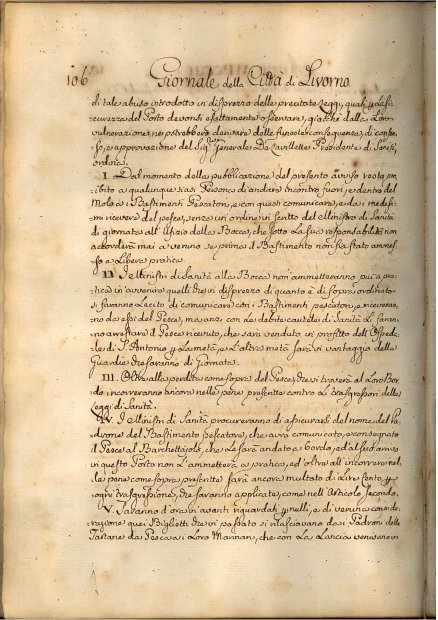 106 Giornale della Città di Livorno
di tale abuso introdotto in disprezzo delle precitate Leggi, quali p la si-
curezza del Porto devonsi esattamente osservare, giacchè dalla Loro
vulnerazione ne potrebbero derivare delle funeste conseguenze, di conser
so, e approvazione del Sig.r Generale De Lavillette Presidente di Sanità,
ordina
I. Dal momento della pubblicazione del presente Avviso resta pro
ibito a qualunque siasi Persona di andare incontro fuori, e dentro del
Molo ai Bastimenti Pescatori, e con questi comunicare, e da i medesi
mi ricevere del pesce, senza un ordine in scritto del Ministro di Sanità
di giornata all' Ufizio della Bocca, che sotto La sua responsabilità non
accorderà mai a veruno se prima il Bastimento non sia stato ammes
so a Libera pratica
II. I Ministri di Sanità alla Bocca non ammetteranno più a pra
tica in avvenire quelli che in disprezzo di quanto è di sopra ordinato
si faranno Lecito di comunicare con i Bastimenti pescatori, e riceveran
no da essi del Pesce, ma anzi con Le debite cautele di Sanità Li faran
no arrestare il Pesce ricevuto, che sarà venduto in profitto dell' Ospeda
le di S. Antonio p La metà, e L'altra metà sarà in vantaggio delle
Guardie che saranno di Giornata.
III. Oltre alla perdita come sopra del Pesce, che si troverà al Loro Bor
do incorreranno ancora nelle pene prescritte contro Li trasgressori delle
Leggi di Sanità
IV. I Ministri di Sanità procureranno di assicurarsi del nome del Pa
drone del Bastimento Pescatore, che avrà comunicato, e consegnato
il Pesce al Barchettajolo, che Le sarà andato a bordo, ed al suo arrivo
in questo Porto non L'ammetterà a pratica, ed oltre all' incorrere nel
le pene come sopra prescritte sarà ancora multato di Lire Cento p
ogni trasgressione, che saranno applicate, come nell' Articolo secondo.
V. Saranno d'ora in avanti riguardati p nulli, e di veruna conside
razione quei Biglietti che in passato si rilasciavano dai Padroni delle
Tartane da Pesca ai Loro Marinari, che con La Lancia venivano in